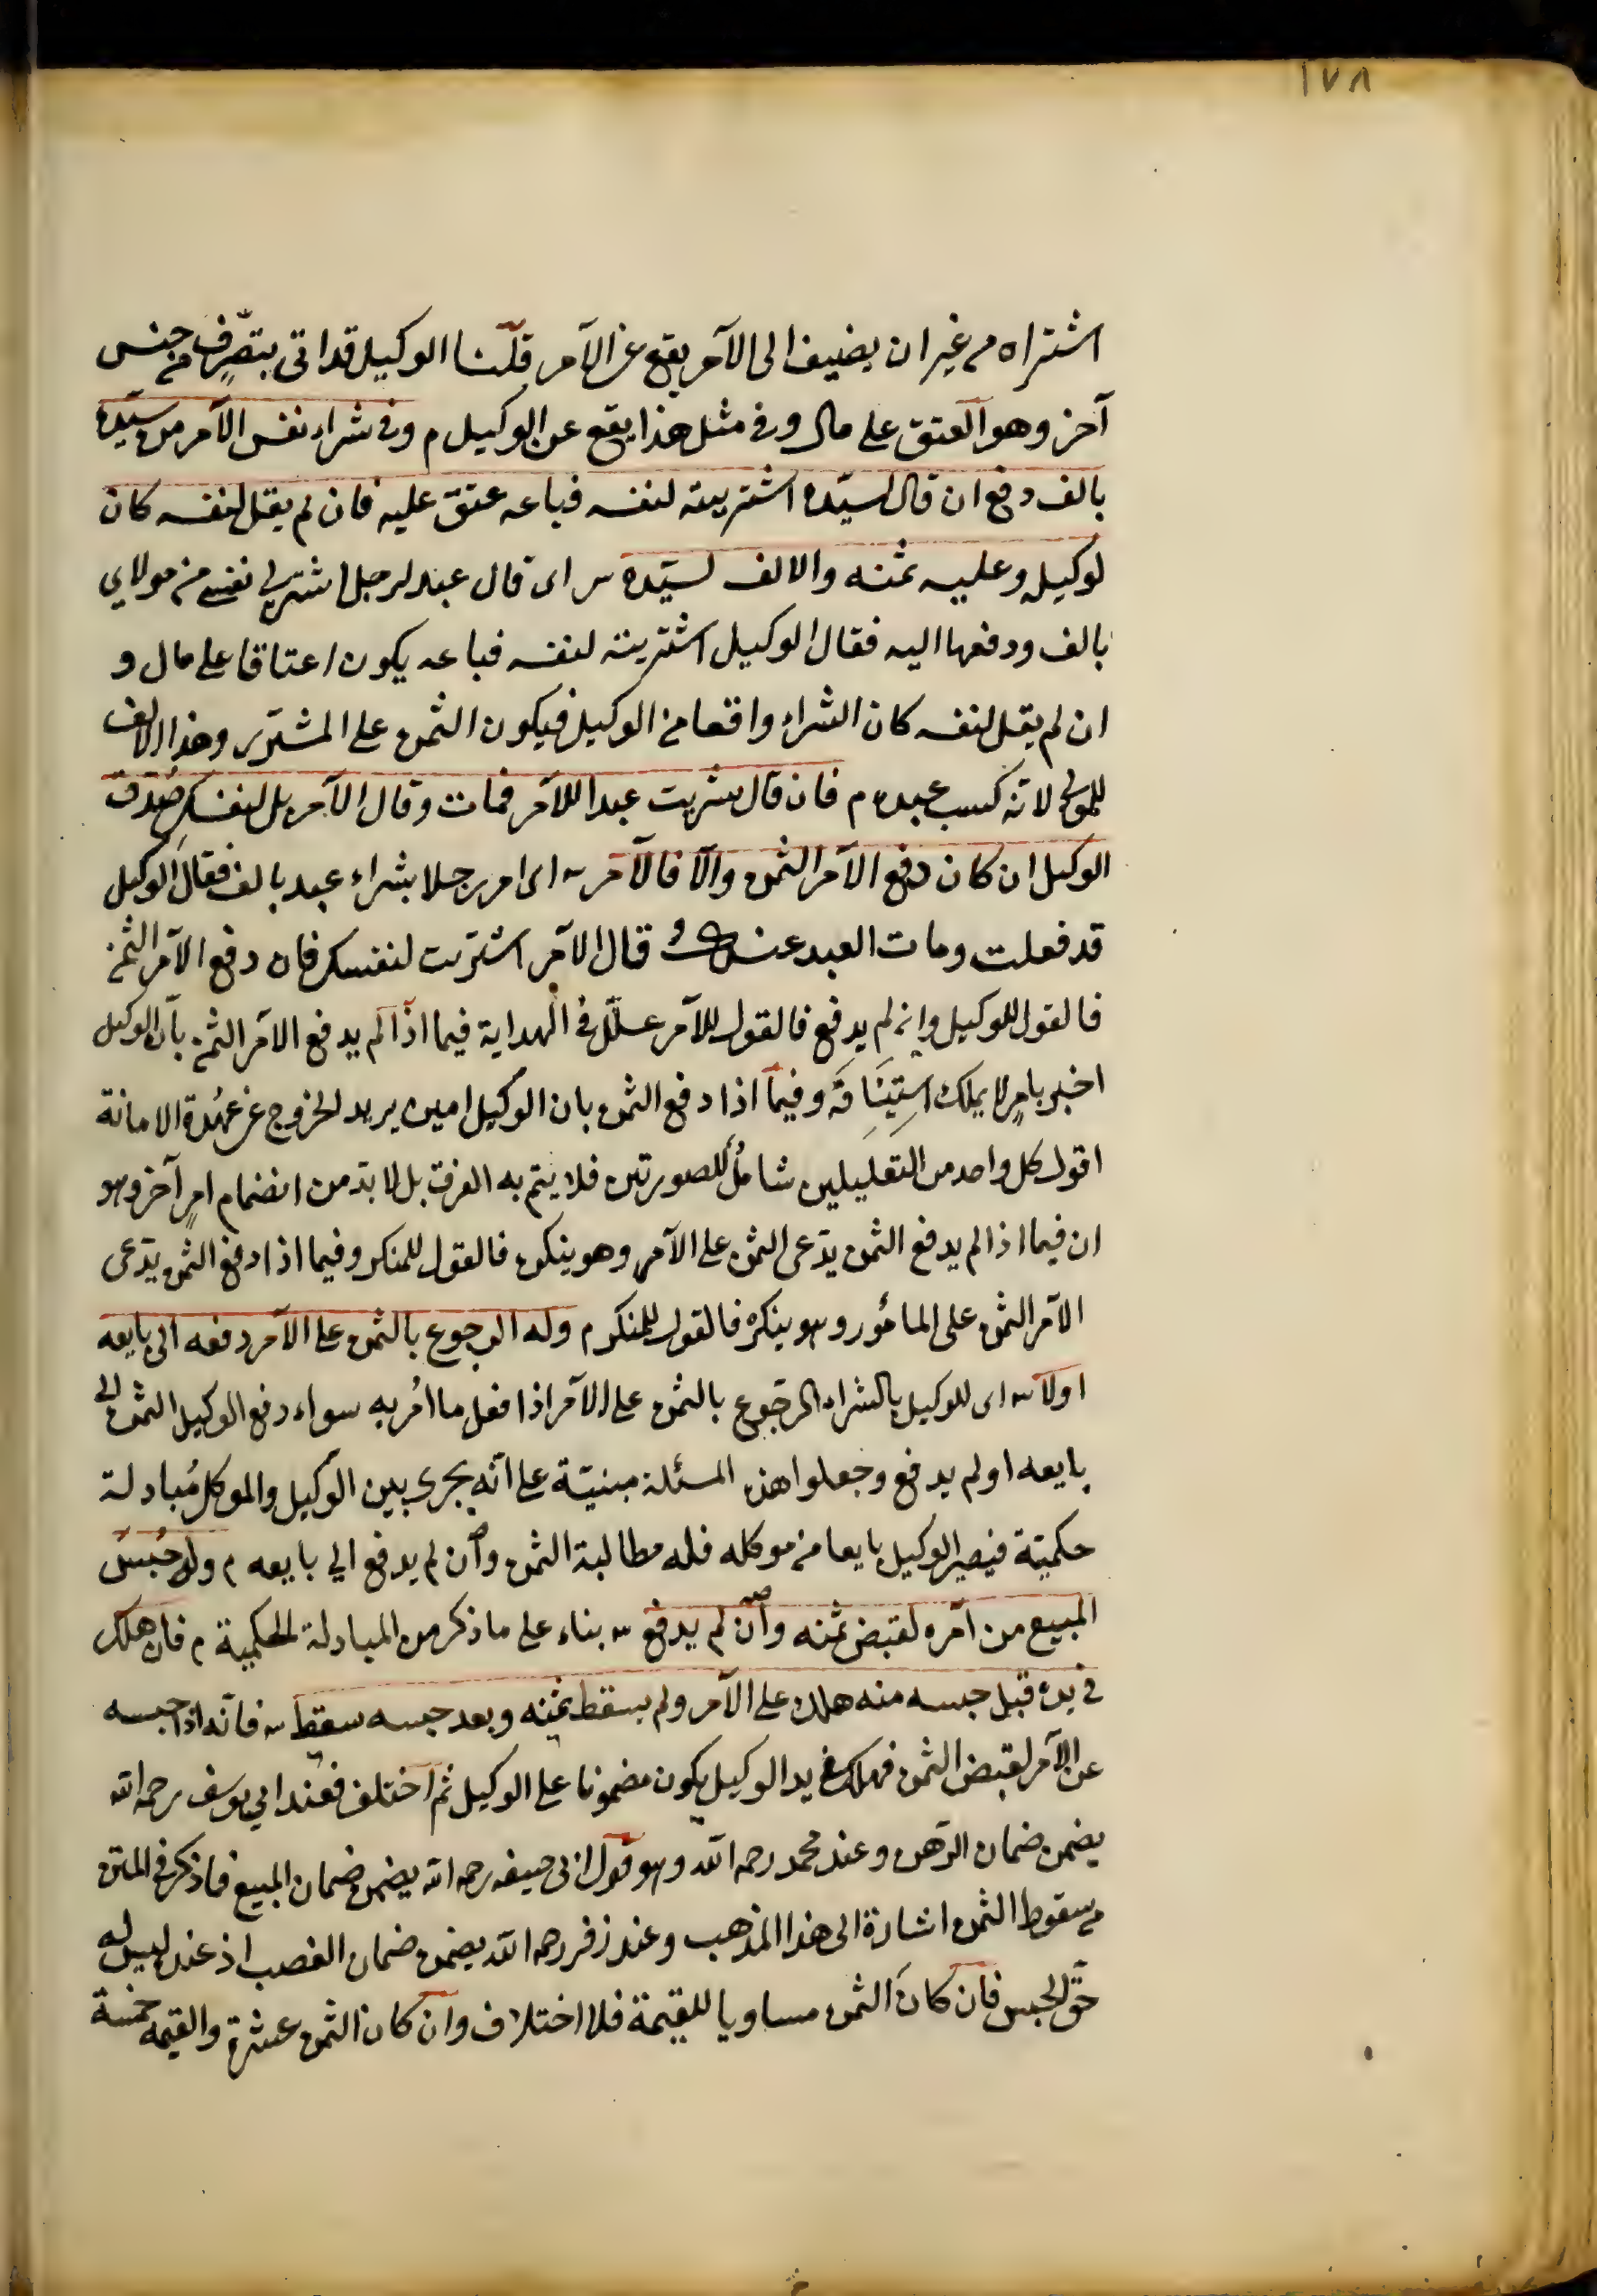 ١٧٨
اشتراه من غير ان يضيف الى الآمر يقع عن الآمر قلنا الوكيل قد اتى بتصرّف من جنس
آخر وهو العتق على مال وفي مثل هذا يقع عن الوكيل م وفي شراء نفس الآمر من سيّده
بالف دفع ان قال لسيّده اشتريته لنفسه فباعه عتق عليه فان لم يقل لنفسه كان
لوكيله وعليه ثمنه والالف لسيّده س اى قال عبد لرجل اشتر لي نفسي من مولاي
بالف ودفعها اليه فقال الوكيل اشتريته لنفسه فباعه يكون اعتاقا على مال و
ان لم يقل لنفسه كان الشراء واقعا من الوكيل فيكون الثمن على المشترى وهذا الالف
للمولى لانّه كسب عبده م فان قال شريت عبدا للآمر فمات وقال الآمر بل لنفسك صُدّق
الوكيل ان كان دفع الآمر الثمن والّا فالآمر س اى امر رجلا بشراء عبد بالف فقال الوكيل
قد فعلت ومات العبد عندي و قال الآمر اشتريت لنفسك فان دفع الآمر الثمن
فالقول للوكيل وان لم يدفع فالقول للآمر علّل في الهداية فيما اذا لم يدفع الآمر الثمن بانّ الوكيل
اخبر بامرٍ لا يملك استينافَه وفيما اذا دفع الثمن بان الوكيل امين يريد الخروج عن عُهدة الامانة
اقول كل واحد من التعليلين شاملٌ للصورتين فلا يتم به الفرق بل لا بدّ من انضمام امرٍ آخر وهو
ان فيما اذا لم يدفع الثمن يدّعى الثمن على الآمر وهو ينكره فالقول للمنكر وفيما اذا دفع الثمن يدّعى
الآمر الثمن على المأمور وهو ينكره فالقول للمنكر م وله الرجوع بالثمن على الآمر دفعه الى بايعه
اولا س اى للوكيل بالشراء الرجوع بالثمن على الآمر اذا فعل ما اُمر به سواء دفع الوكيل الثمن الى
بايعه او لم يدفع وجعلوا هذه المسئلة مبنيّة على انّه يجرى بين الوكيل والموكل مُبادلة
حكميّة فيصير الوكيل بايعا من موكله فله مطالبة الثمن وان لم يدفع الي بايعه م وله حَبْسُ
المبيع من آمره لقبض ثمنه وان لم يدفع س بناء على ما ذكر من المبادلة الحكمية م فان هلك
في يده قبل حبسه منه هلك على الآمر ولم يسقط ثمنه وبعد حبسه سقط س فانّه اذا حبسه
عن الآمر لقبض الثمن فهلك في يد الوكيل يكون مضمونا على الوكيل ثم اختلف فعند ابي يوسف رحمه الله
يضمن ضمان الرّهن وعند محمد رحمه الله وهو قول ابى حنيفه رحمه الله يضمن ضمان المبيع فما ذكر في المتن
من سقوط الثمن اشارة الى هذا المذهب وعند زفر رحمه الله يضمن ضمان الغصب اذ عنده ليس له
حقّ الحبس فان كان الثمن مساويا للقيمة فلا اختلاف وان كان الثمن عشرة والقيمه خمسة